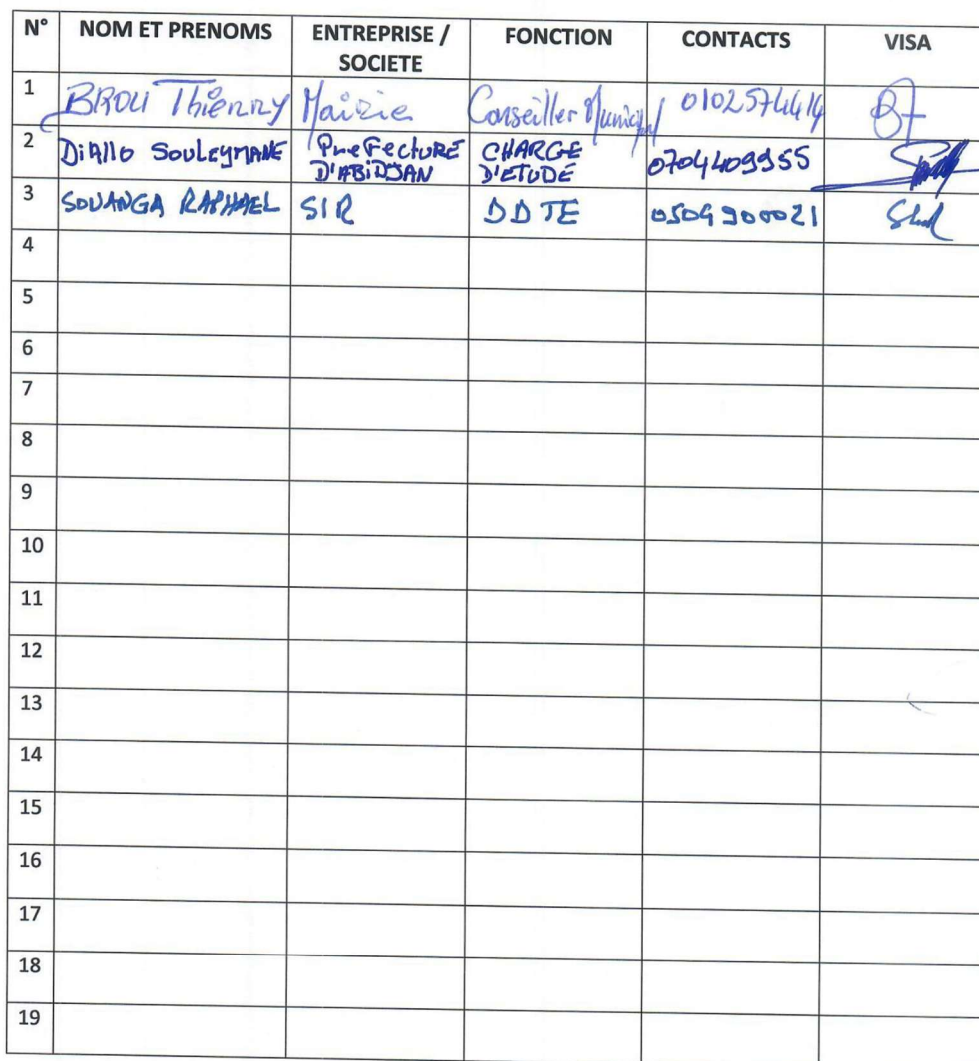 N° NOM ET PRENOMS ENTREPRISE / SOCIETE FONCTION CONTACTS VISA
1 BROU Thierry Mairie Conseiller Municipal 0102574414
2 DiAllo SouleyMANE PreFecture D'ABIDJAN CHARGE D'ETUDE 0704409955
3 SOUANGA RAPHAEL SIR DDTE 0504900021
4
5
6
7
8
9
10
11
12
13
14
15
16
17
18
19